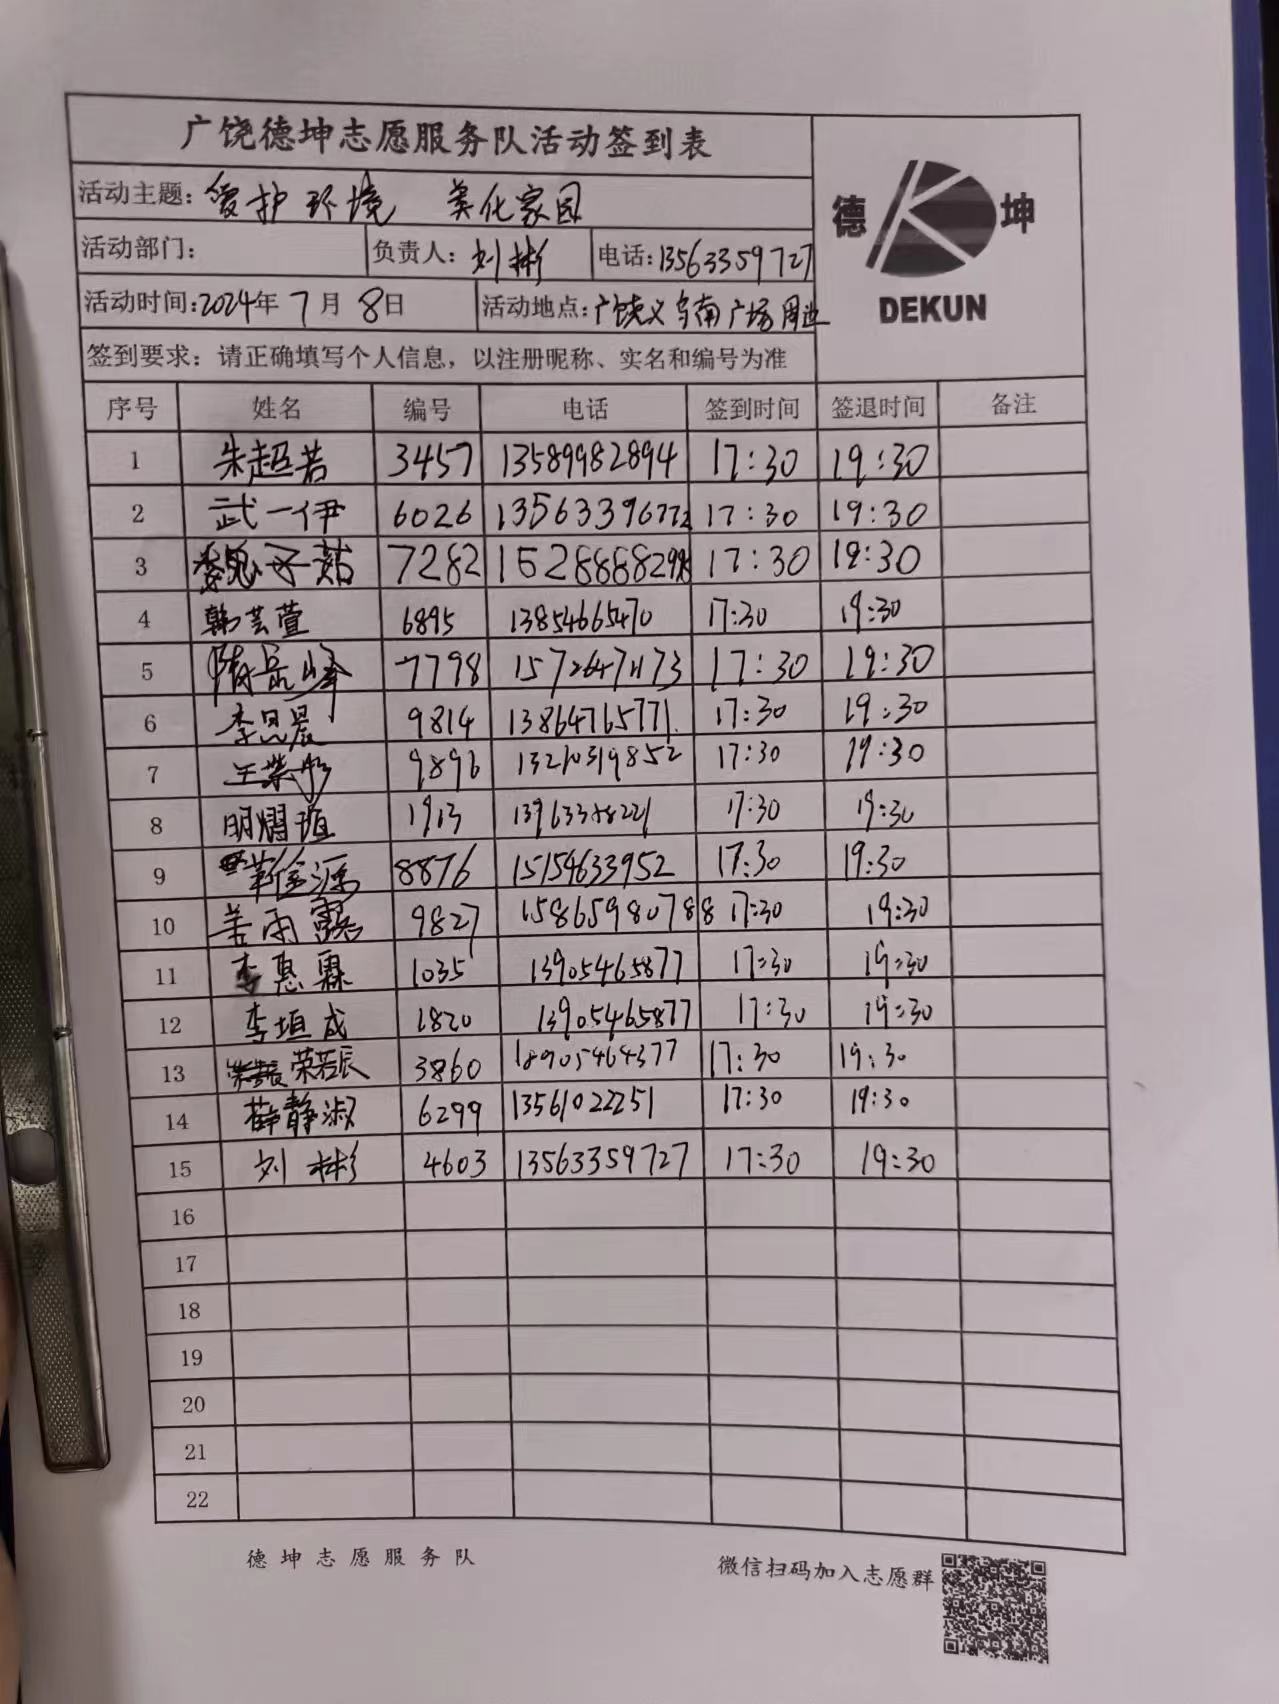 广饶德坤志愿服务队活动签到表
活动主题：爱护环境 美化家园
德 坤
DEKUN
活动部门： 负责人：刘彬 电话：13563359727
活动时间：2024年7月8日 活动地点：广饶义乌南广场周边
签到要求：请正确填写个人信息，以注册昵称、实名和编号为准
序号 姓名 编号 电话 签到时间 签退时间 备注
1 朱超若 3457 13589982894 17:30 19:30
2 武一伊 6026 17:30 19:30
3 7282 17:30 19:30
4 韩芸萱 6895 13854665470 17:30 19:30
5 隋岳峰 7798 17:30 19:30
6 李昆晨 9814 13864765771 17:30 19:30
7 9896 13210319852 17:30 19:30
8 明熠垣 1913 17:30 19:30
9 8876 15154633952 17:30 19:30
10 9827 15865980788 17:30 19:30
11 李惠霖 1035 13905465877 17:30 19:30
12 李垣成 1820 13905465877 17:30 19:30
13 荣若辰 3860 18905464377 17:30 19:30
14 薛静淑 6299 13561022251 17:30 19:30
15 刘彬 4603 13563359727 17:30 19:30
16
17
18
19
20
21
22
德坤志愿服务队 微信扫码加入志愿群